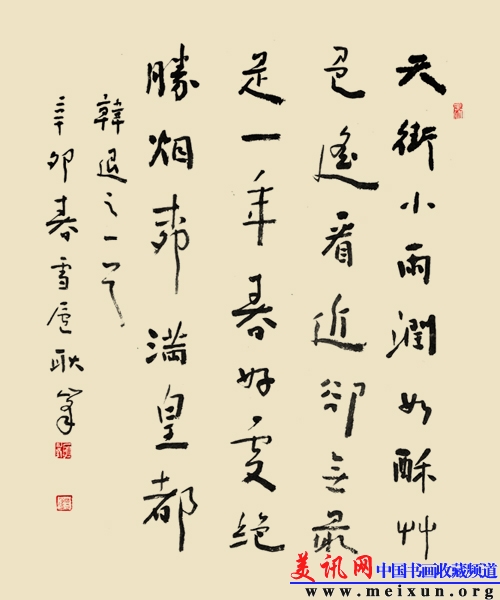 天街小雨潤如酥艸
色遙看近卻無最
是一年春好處絕
勝烟柳滿皇都
韓退之一首
辛卯春雪廬耿峯
美讯网 中国书画收藏频道
www.meixun.org